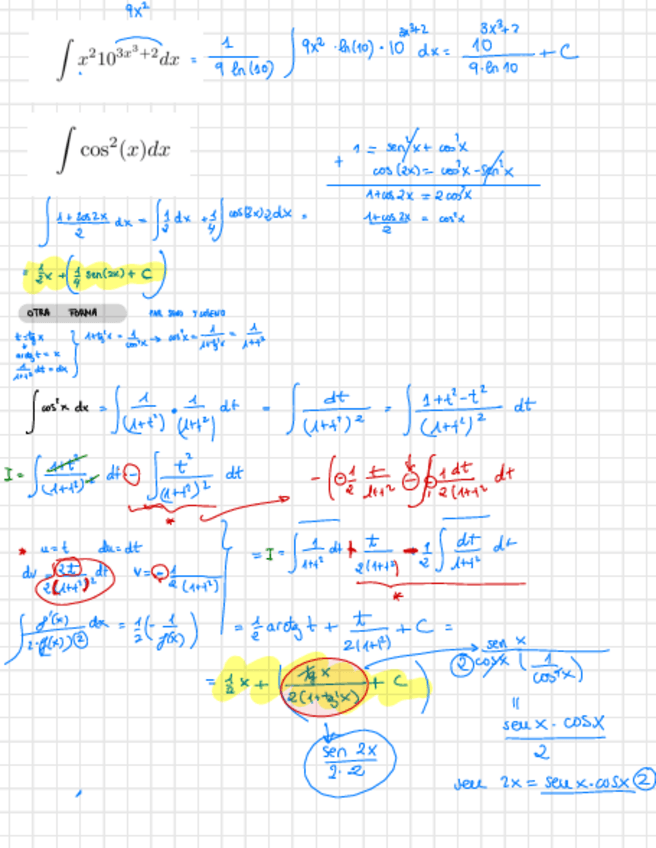 9x²
∫ x²10^(3x³+2) dx = 1/(9 ln(10)) ∫ 9x² · ln(10) · 10^(3x³+2) dx = 10^(3x³+2)/(9·ln 10) + C
∫ cos²(x)dx
+ 1 = sen²x + cos²x
cos(2x) = cos²x - sen²x
1+cos2x = 2cos²x
(1+cos2x)/2 = cos²x
∫ (1+cos2x)/2 dx = ∫ 1/2 dx + 1/4 ∫ cos(2x)2dx =
= 1/2 x + (1/4 sen(2x) + C)
OTRA FORMA
t = tg x
arctg t = x
1/(1+t²) dt = dx
1+tg²x = 1/cos²x → cos²x = 1/(1+tg²x) = 1/(1+t²)
∫ cos²x dx = ∫ 1/(1+t²) · 1/(1+t²) dt = ∫ dt/(1+t²)² = ∫ (1+t²-t²)/(1+t²)² dt
I = ∫ (1+t²)/(1+t²)² dt - ∫ t²/(1+t²)² dt
*
- (- 1/2 t/(1+t²) - ∫ - 1 dt/2(1+t² dt
* u=t du=dt
dv = 2t/2(1+t²)² dt v = - 1/2(1+t²)
= I = ∫ 1/(1+t²) dt + t/2(1+t²) - 1/2 ∫ dt/(1+t²) dt
*
∫ f'(x)/2·(f(x))² dx = 1/2(- 1/f(x))
= 1/2 arctg t + t/2(1+t²) + C =
= 1/2 x + (tg x/2(1+tg²x) + C)
sen x/2 cosx (1/cos²x)
=
sen x · cosx/2
sen 2x/2·2
sen 2x = sen x·cosx 2